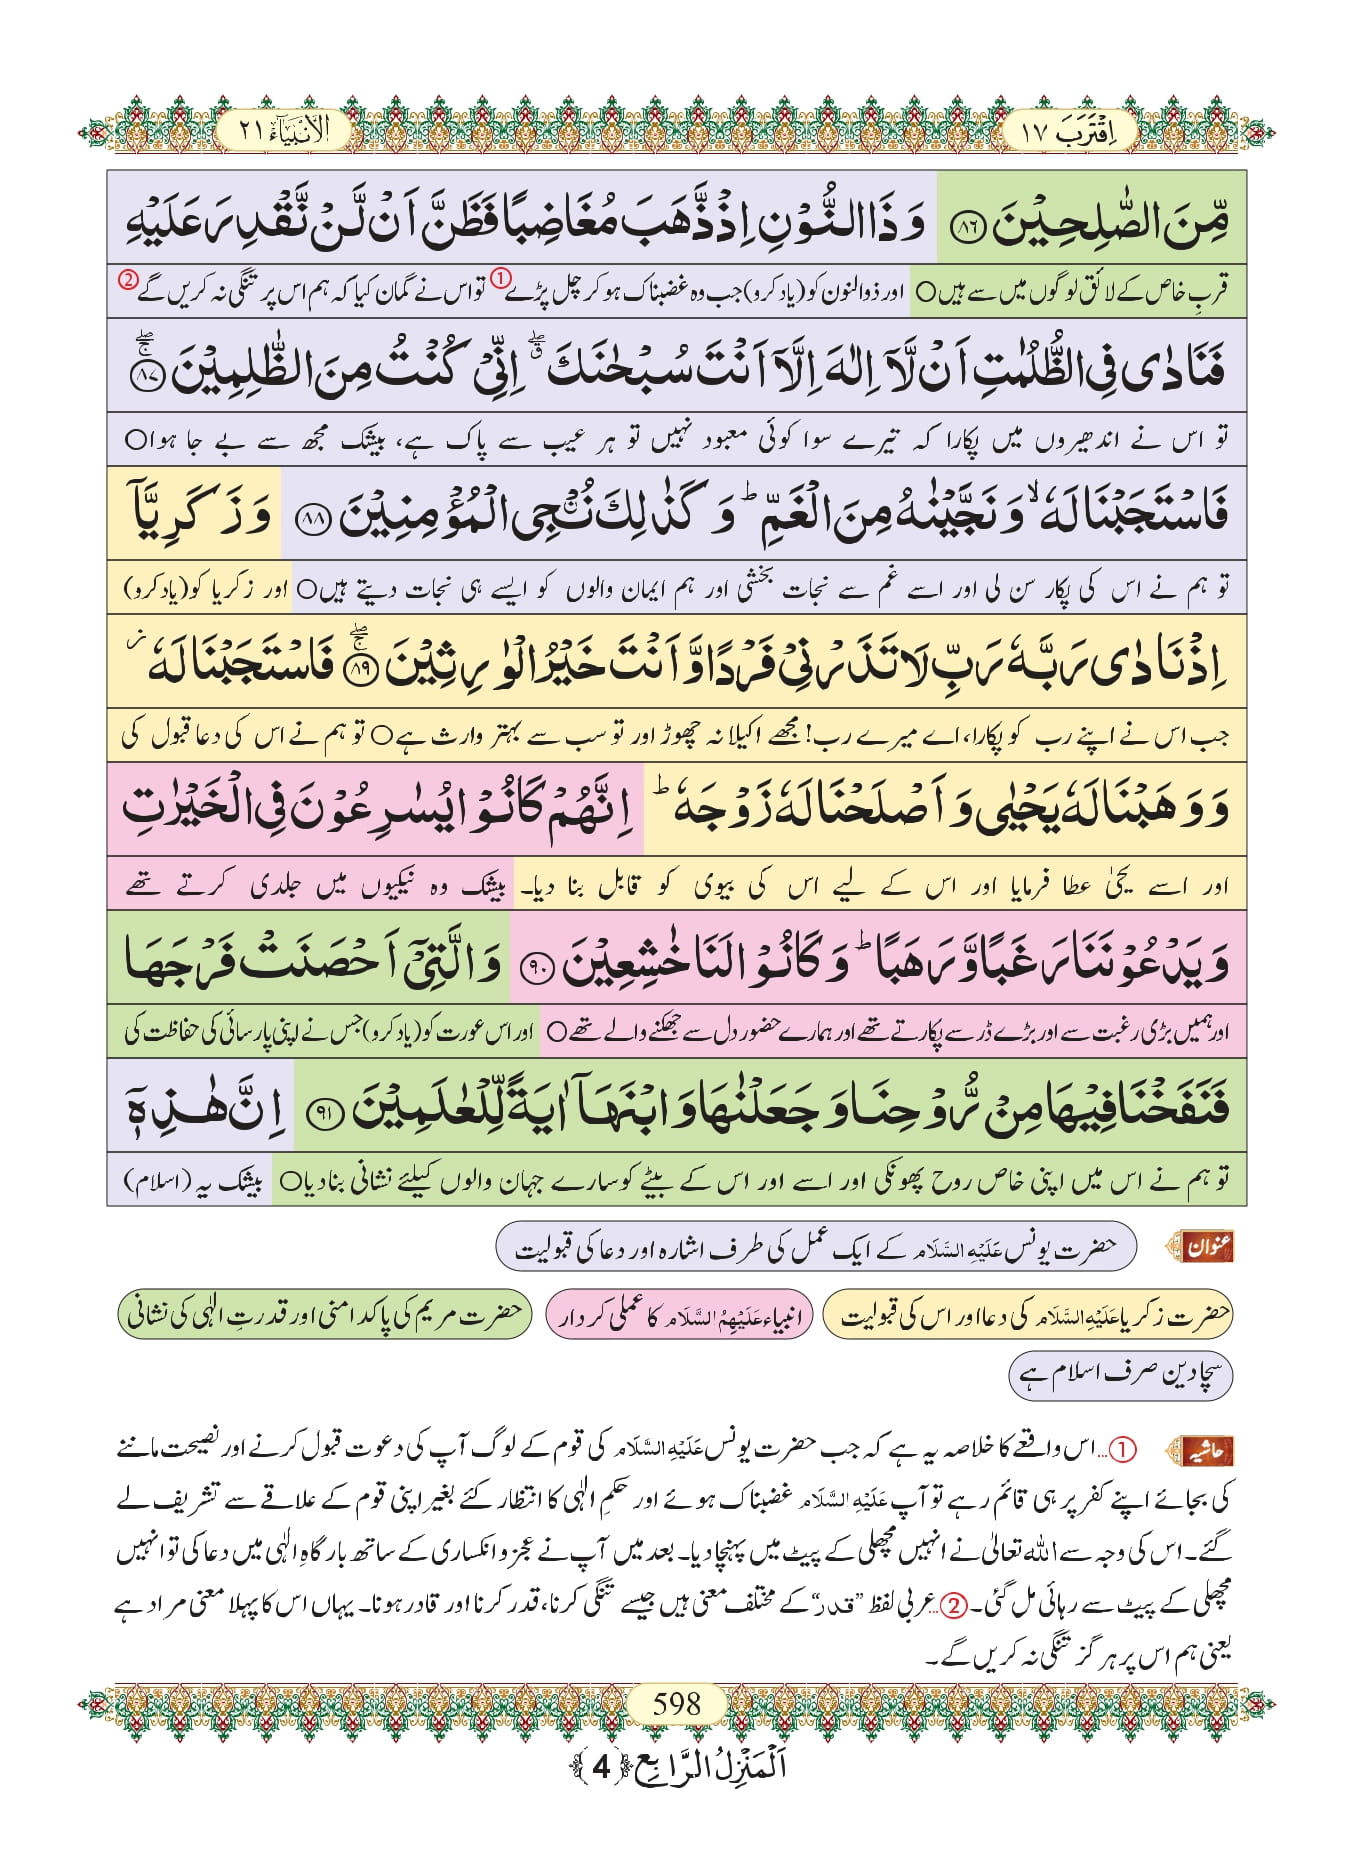 اِقْتَرَبَ ١٧
الْاَنْبِيَآء ٢١
مِّنَ الصّٰلِحِیْنَ ﴿۸۶﴾ وَ ذَا النُّوْنِ اِذْ ذَّهَبَ مُغَاضِبًا فَظَنَّ اَنْ لَّنْ نَّقْدِرَ عَلَیْهِ
قربِ خاص کے لائق لوگوں میں سے ہیں○ اور ذوالنون کو (یاد کرو) جب وہ غضبناک ہو کر چل پڑے① تو اس نے گمان کیا کہ ہم اس پر تنگی نہ کریں گے②
فَنَادٰى فِی الظُّلُمٰتِ اَنْ لَّاۤ اِلٰهَ اِلَّاۤ اَنْتَ سُبْحٰنَكَ ۖۗ اِنِّیْ كُنْتُ مِنَ الظّٰلِمِیْنَ ﴿۸۷﴾ۚۖ
تو اس نے اندھیروں میں پکارا کہ تیرے سوا کوئی معبود نہیں تو ہر عیب سے پاک ہے، بیشک مجھ سے بے جا ہوا○
فَاسْتَجَبْنَا لَهٗ ۙ وَ نَجَّیْنٰهُ مِنَ الْغَمِّ ؕ وَ كَذٰلِكَ نُـْۨجِی الْمُؤْمِنِیْنَ ﴿۸۸﴾ وَ زَكَرِیَّاۤ
تو ہم نے اس کی پکار سن لی اور اسے غم سے نجات بخشی اور ہم ایمان والوں کو ایسے ہی نجات دیتے ہیں○ اور زکریا کو (یاد کرو)
اِذْ نَادٰى رَبَّهٗ رَبِّ لَا تَذَرْنِیْ فَرْدًا وَّ اَنْتَ خَیْرُ الْوٰرِثِیْنَ ﴿۸۹﴾ۚۖ فَاسْتَجَبْنَا لَهٗ ؗ
جب اس نے اپنے رب کو پکارا، اے میرے رب! مجھے اکیلا نہ چھوڑ اور تو سب سے بہتر وارث ہے○ تو ہم نے اس کی دعا قبول کی
وَ وَهَبْنَا لَهٗ یَحْیٰى وَ اَصْلَحْنَا لَهٗ زَوْجَهٗ ؕ اِنَّهُمْ كَانُوْا یُسٰرِعُوْنَ فِی الْخَیْرٰتِ
اور اسے یحیٰ عطا فرمایا اور اس کے لیے اس کی بیوی کو قابل بنا دیا۔ بیشک وہ نیکیوں میں جلدی کرتے تھے
وَ یَدْعُوْنَنَا رَغَبًا وَّ رَهَبًا ؕ وَ كَانُوْا لَنَا خٰشِعِیْنَ ﴿۹۰﴾ وَ الَّتِیْۤ اَحْصَنَتْ فَرْجَهَا
اور ہمیں بڑی رغبت سے اور بڑے ڈر سے پکارتے تھے اور ہمارے حضور دل سے جھکنے والے تھے○ اور اس عورت کو (یاد کرو) جس نے اپنی پارسائی کی حفاظت کی
فَنَفَخْنَا فِیْهَا مِنْ رُّوْحِنَا وَ جَعَلْنٰهَا وَ ابْنَهَاۤ اٰیَةً لِّلْعٰلَمِیْنَ ﴿۹۱﴾ اِنَّ هٰذِهٖۤ
تو ہم نے اس میں اپنی خاص روح پھونکی اور اسے اور اس کے بیٹے کو سارے جہان والوں کیلئے نشانی بنا دیا○ بیشک یہ (اسلام)
عنوان حضرت یونس عَلَیْهِ السَّلَام کے ایک عمل کی طرف اشارہ اور دعا کی قبولیت
حضرت زکریا عَلَیْهِ السَّلَام کی دعا اور اس کی قبولیت انبیاء عَلَیْهِمُ السَّلَام کا عملی کردار حضرت مریم کی پاکدامنی اور قدرتِ الٰہی کی نشانی
سچا دین صرف اسلام ہے
حاشیہ ①...اس واقعے کا خلاصہ یہ ہے کہ جب حضرت یونس عَلَیْهِ السَّلَام کی قوم کے لوگ آپ کی دعوت قبول کرنے اور نصیحت ماننے
کی بجائے اپنے کفر پر ہی قائم رہے تو آپ عَلَیْهِ السَّلَام غضبناک ہوئے اور حکمِ الٰہی کا انتظار کئے بغیر اپنی قوم کے علاقے سے تشریف لے
گئے۔ اس کی وجہ سے اللہ تعالیٰ نے انہیں مچھلی کے پیٹ میں پہنچا دیا۔ بعد میں آپ نے عجز و انکساری کے ساتھ بارگاہِ الٰہی میں دعا کی تو انہیں
مچھلی کے پیٹ سے رہائی مل گئی۔ ②...عربی لفظ ”قدر“ کے مختلف معنی ہیں جیسے تنگی کرنا، قدر کرنا اور قادر ہونا۔ یہاں اس کا پہلا معنی مراد ہے
یعنی ہم اس پر ہرگز تنگی نہ کریں گے۔
598
اَلْمَنْزِلُ الرَّابِع ﴿4﴾